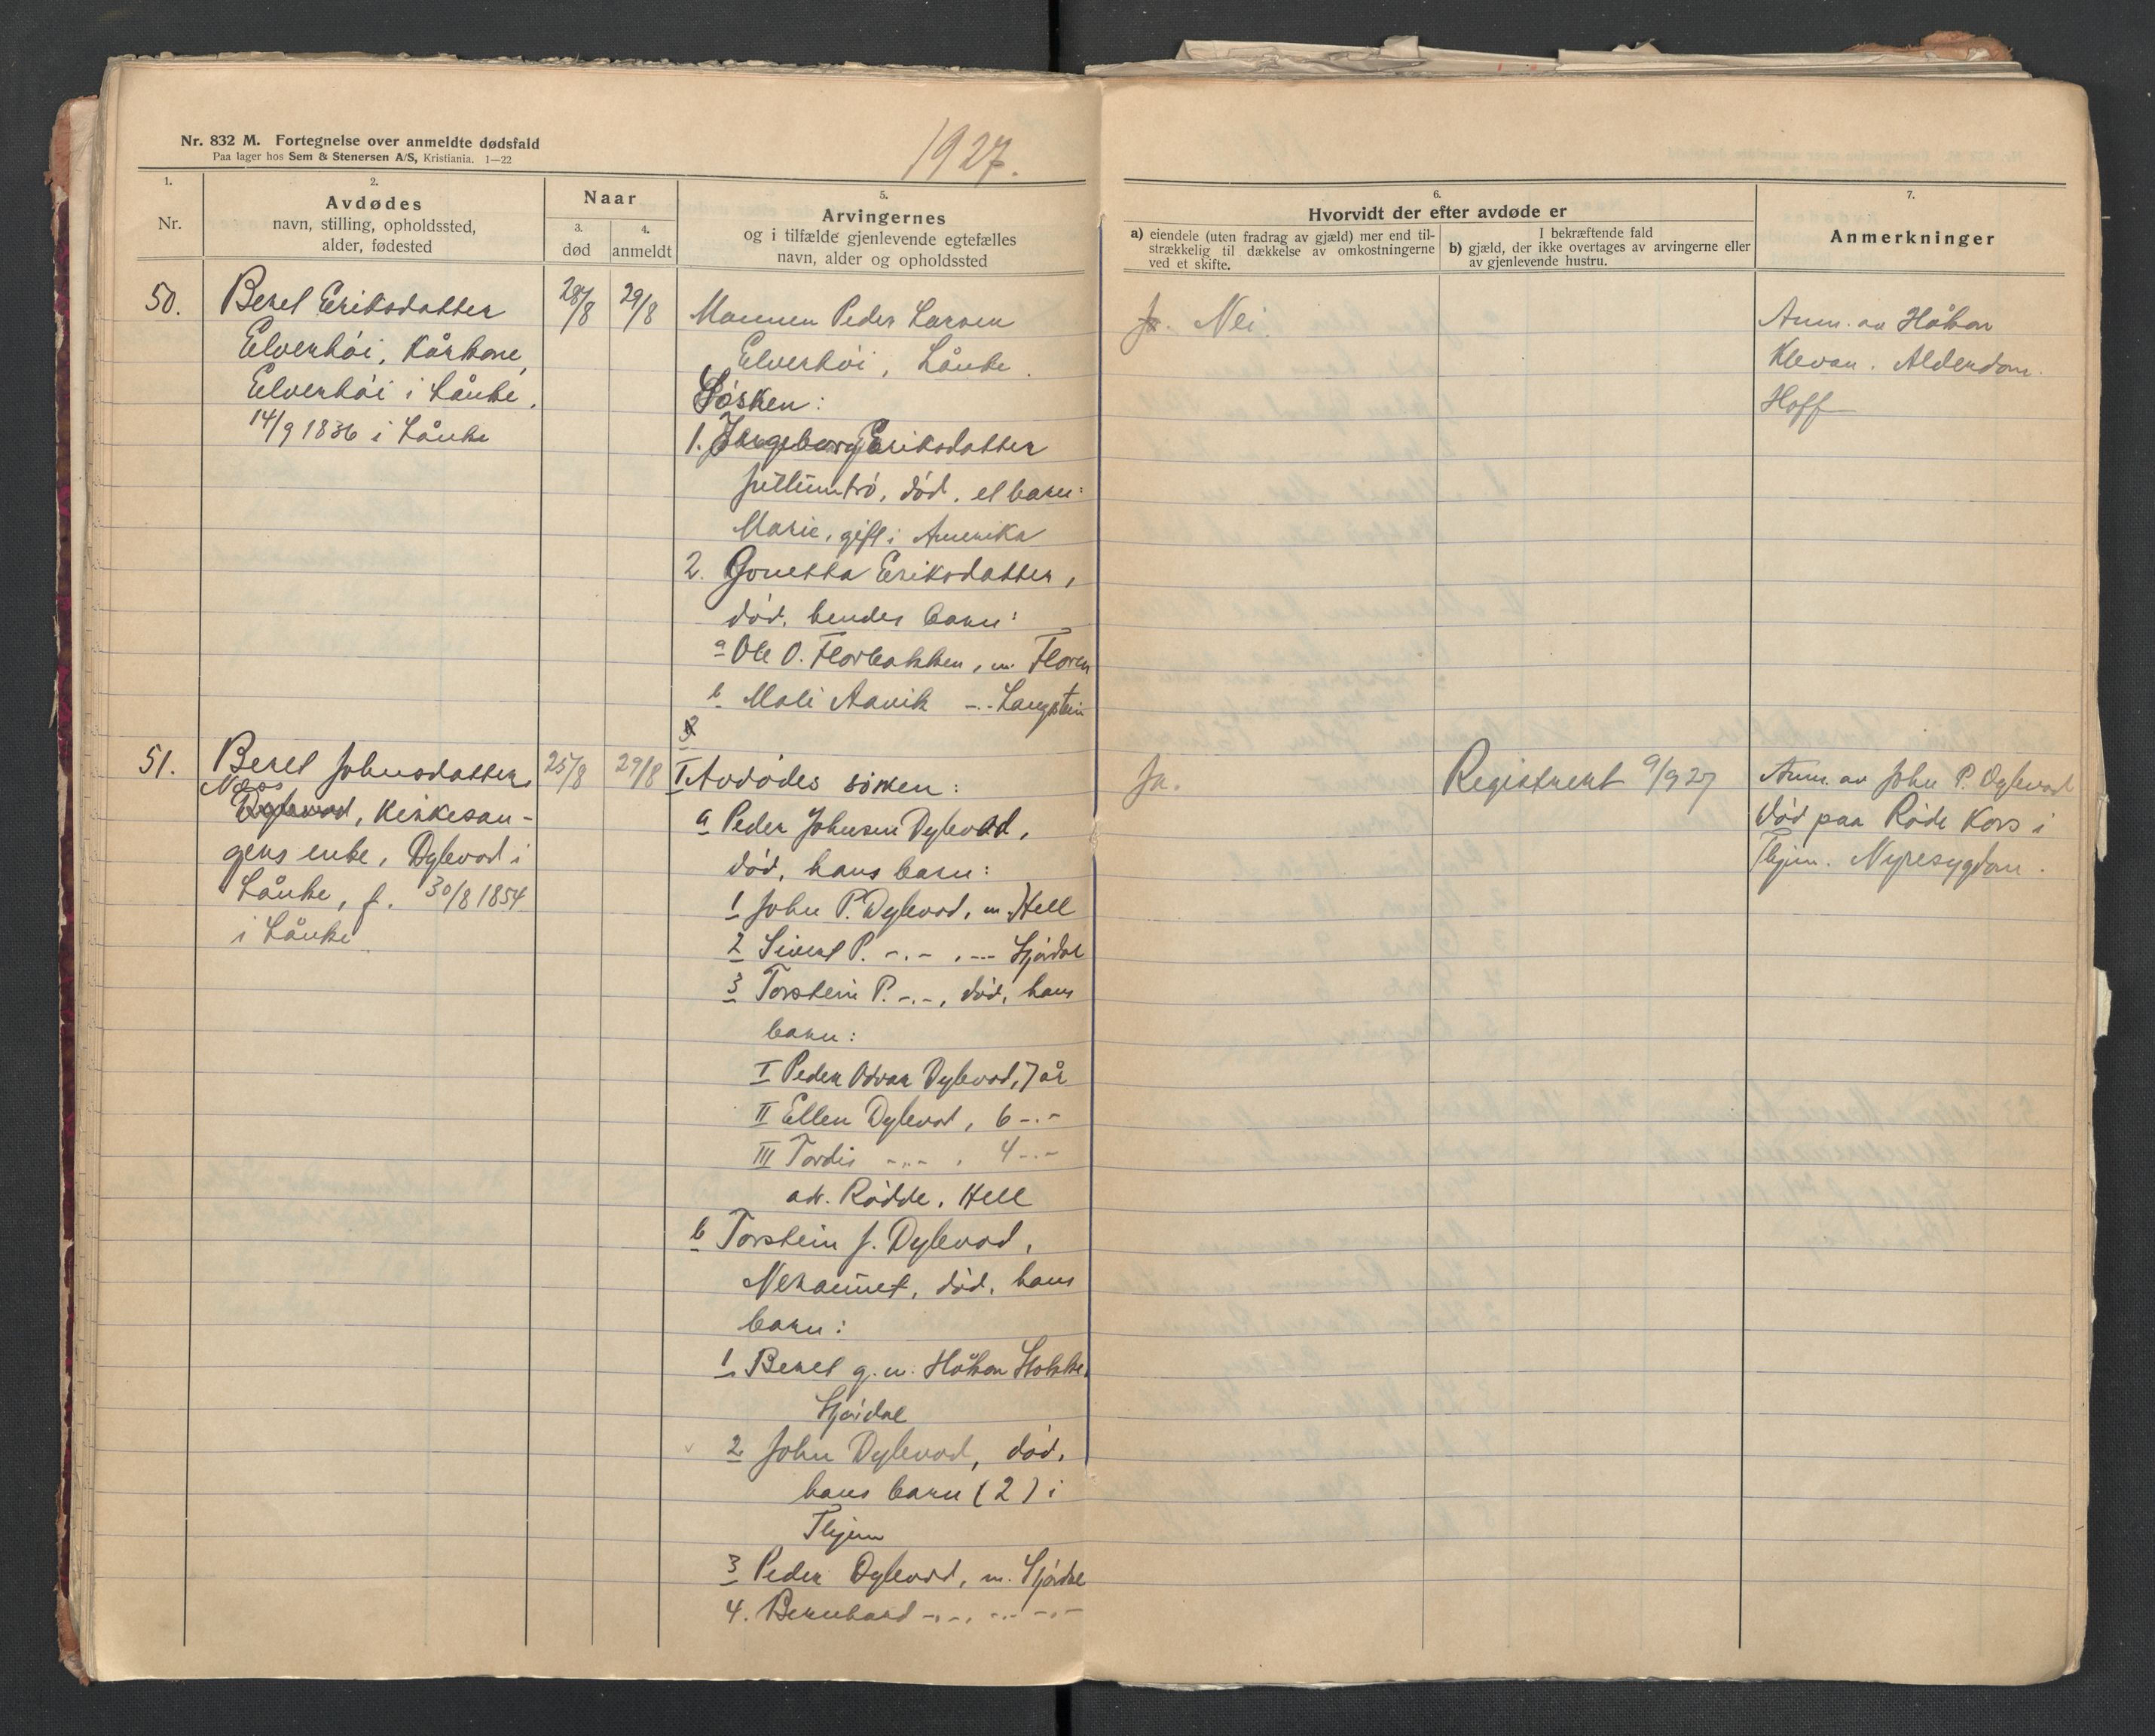 Nr. 832 M. Fortegnelse over anmeldte dødsfald
Paa lager hos Sem & Stenersen A/S, Kristiania. 1—22
1927.
1.
Nr.
2.
Avdødes
navn, stilling, opholdssted,
alder, fødested
Naar
3.
død
4.
anmeldt
5.
Arvingernes
og i tilfælde gjenlevende egtefælles
navn, alder og opholdssted
6.
Hvorvidt der efter avdøde er
a) eiendele (uten fradrag av gjæld) mer end til-
strækkelig til dækkelse av omkostningerne
ved et skifte.
I bekræftende fald
b) gjæld, der ikke overtages av arvingerne eller
av gjenlevende hustru.
7.
Anmerkninger
50.
Beret Eriksdatter
Elverhöi, Kårkone,
Elverhöi i Lånke,
14/9 1836 i Lånke
28/8
29/8
Mannen Peder Larsen
Elverhöi, Lånke.
Sösken:
1. Ingeborg Eriksdatter
död, et barn:
Marie, gift i Amerika
2. Gonetta Eriksdatter,
död, hendes barn:
a Ole O. Florbakken, m. Floren
b Mali Aavik -.- Langstein
Nei.
Anm. av Håkon
Klevan. Alderdom.
Hoff
51.
Beret Johnsdatter
Næss
Dylevod, Kirkesan-
gers enke, Dylevod i
Lånke, f. 30/8 1854
i Lånke
25/8
29/8
I Avdödes sösken:
a Peder Johnsen Dylevod,
död, hans barn:
1 John P. Dylevod, m. Hell
2 Sivert P. -.- , -.- Stjördal
3 Torstein P. -.-, död, hans
barn:
I Peder Odvar Dylevod, 7 år
II Ellen Dylevod, 6 -.-
III Tordis -.- , 4 -.-
adr. Rödde, Hell
b Torstein J. Dylevod,
död, hans
barn:
1 Beret g. m. Håkon Stokke,
Stjördal
2 John Dylevod, död,
hans barn (2) i
Thjem
3 Peder Dylevod, m. Stjördal
4. Bernhard -.-, -.- -.-
Ja.
Registrert 9/9 27
Anm. av John P. Dylevod
Död paa Röde Kors i
Thjem. Nyresygdom.